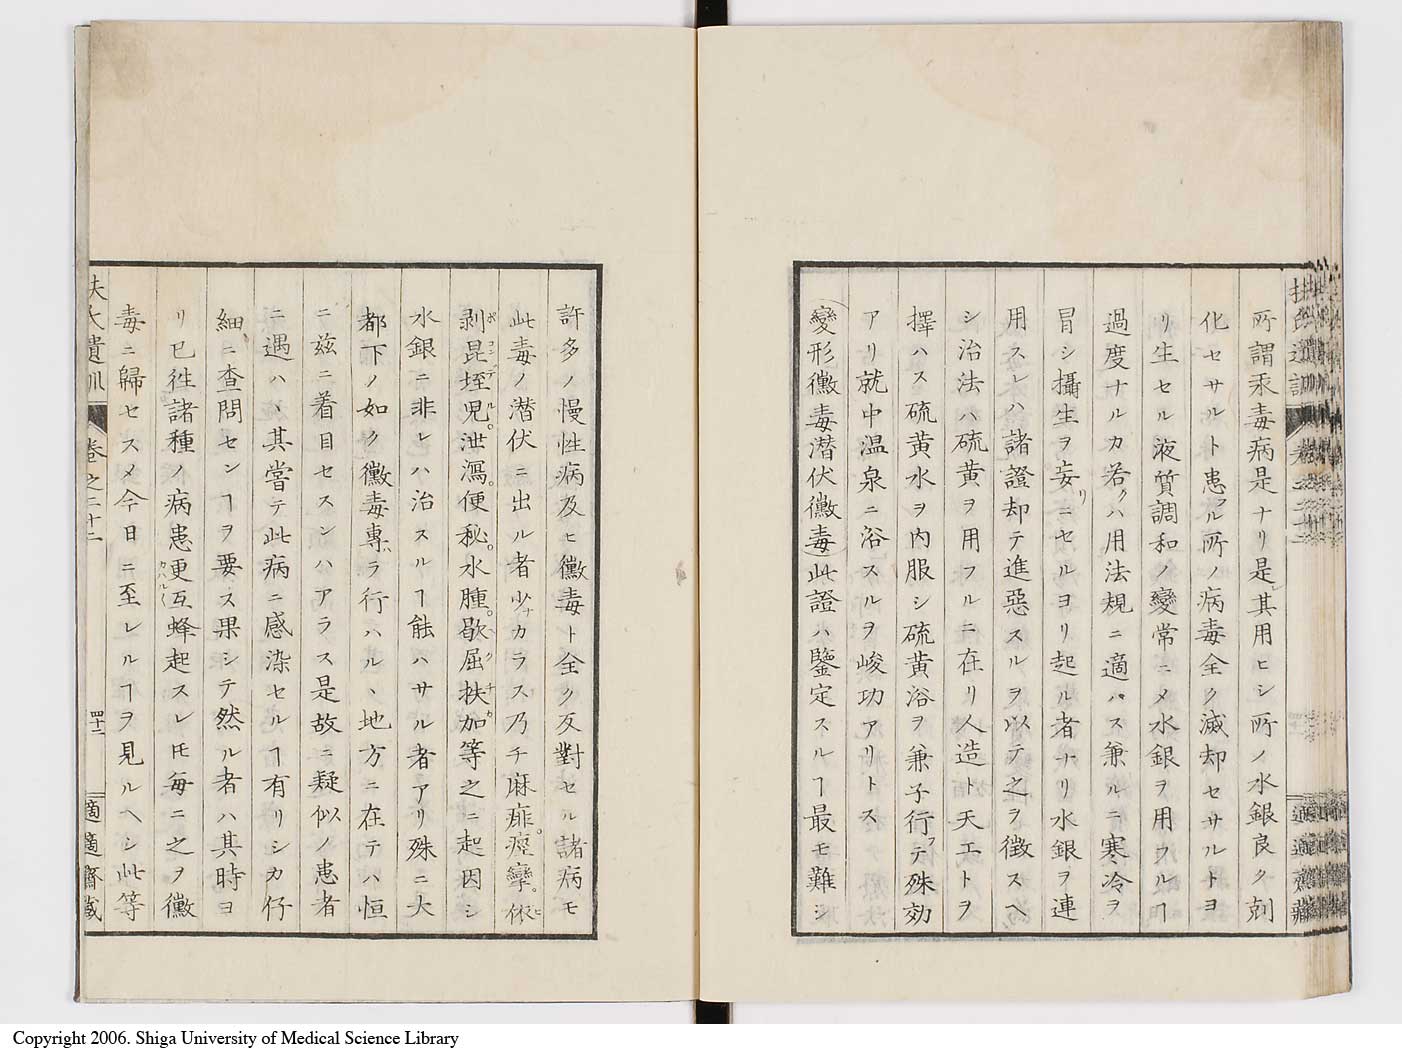 所謂汞毒病是ナリ是其用ヒシ所ノ水銀良ク剋
化セサルト患フル所ノ病毒全ク滅却セサルトヨ
リ生セル液質調和ノ變常ニメ水銀ヲ用フルヿ
過度ナルカ若クハ用法規ニ適ハス兼ルニ寒冷ヲ
冒シ攝生ヲ妄リニセルヨリ起ル者ナリ水銀ヲ連
用スレハ諸證却テ進惡スルヲ以テ之ヲ徴スヘ
シ治法ハ硫黄ヲ用フルニ在リ人造ト天工トヲ
擇ハス硫黄水ヲ内服シ硫黄浴ヲ兼子行フテ殊効
アリ就中温泉ニ浴スルヲ峻功アリトス
變形黴毒潜伏黴毒此證ハ鑒定スルヿ最モ難シ
許多ノ慢性病及ヒ黴毒ト全ク反對セル諸病モ
此毒ノ潜伏ニ出ル者少ナカラス乃チ麻痱。痙攣。依ヒ
剥昆垤児。泄瀉。便秘。水腫。歇屈扶加等之ニ起因シ
ポコンデル ヘクチカ
水銀ニ非レハ治スルヿ能ハサル者アリ殊ニ大
都下ノ如ク黴毒專ハラ行ハル、地方ニ在テハ恒
ニ茲ニ着目セスンハアラス是故ニ疑似ノ患者
ニ遇ハ、其嘗テ此病ニ感染セルヿ有リシカ仔
細ニ査問センヿヲ要ス果シテ然ル者ハ其時ヨ
リ已徃諸種ノ病患更互蜂起スレ𪜈毎ニ之ヲ黴
カハル〱
毒ニ歸セスメ今日ニ至レルヿヲ見ルヘシ此等
扶氏遺訓 卷之二十二 四十二 適適齋藏